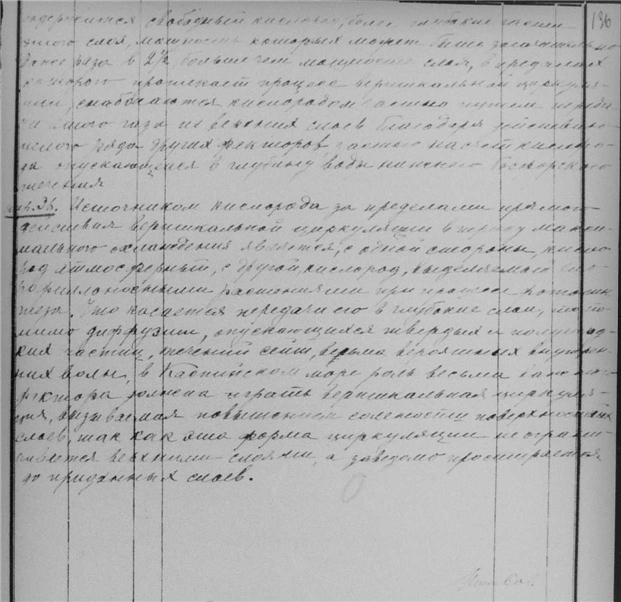 136
содержится свободный кислород, более глубокие части
этого слоя, мощность которых может быть значительно
более раза в 2½ больше чем мощность слоя, в пределах
которого протекает процесс вертикальной циркуля-
ции, снабжаются кислородом частью путем переда-
чи этого газа из верхних слоев благодаря действию
целого ряда других факторов, частью насчет кислоро-
да опускающейся в глубину воды нижнего Босфорского
течения.
Источником кислорода за пределами прямого
действия вертикальной циркуляции в период макси-
мального охлаждения является, с одной стороны, кисло-
род атмосферный, с другой кислород, выделяемый хло-
рофиллоносными растениями при процессе фотосин-
теза. Что касается передачи его в глубокие слои, то по-
мимо диффузии, опускающихся твердых и полужид-
ких частиц, течений сейш, весьма вероятных внутрен-
них волн, в Каспийском море роль весьма важного
фактора должна играть вертикальная циркуля-
ция, вызываемая повышением солености поверхностных
слоев, так как эта форма циркуляции не ограни-
чивается верхними слоями, а заведомо простирается
до придонных слоев.